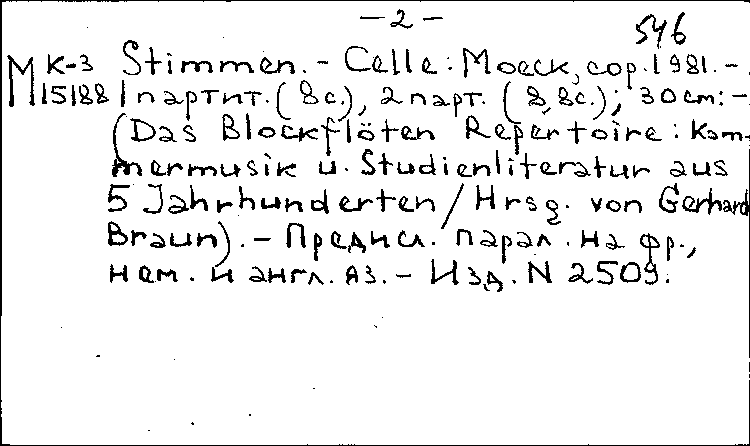 - 2 -
546
М К-3 Stimmen. - Celle: Moeck, cop. 1981. -
15188 1 партит. (8 с.), 2 парт. (8, 8 с.); 30 см: -
(Das Blockflöten Repertoire: Kam-
mermusik u. Studienliteratur aus
5 Jahrhunderten / Hrsg. von Gerhard
Braun). - Предисл. парал. на фр.,
нем. и англ. яз. - Изд. N 2509.